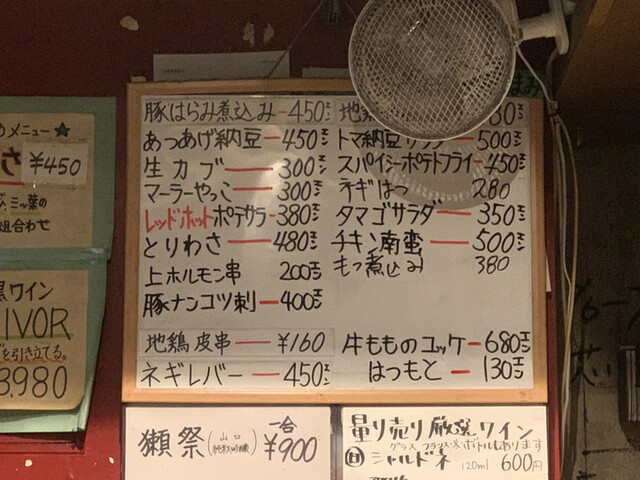 豚はらみ煮込み 450エン
あつあげ納豆 450エン
生カブ 300エン
マーラーやっこ 300エン
レッドホットポテサラ 380エン
とりわさ 480エン
上ホルモン串 200エン
豚ナンコツ刺 400エン
地鶏皮串 ¥160
ネギレバー 450エン
地
トマ納豆サラダ 500エン
スパイシーポテトフライ 450エン
ネギはつ 280
タマゴサラダ 350エン
チキン南蛮 500エン
もつ煮込み 380
牛もものユッケ 680エン
はつもと 130エン
メニュー★
さ ¥450
三ッ葉の
組合わせ
ワイン
IVOR
を引き立てる。
3,980
獺祭(山口 純米大吟醸) 一合 ¥900
量り売り厳選ワイン
グラス フラスコ・ボトルもあります
白 シャルドネ 120ml 600円